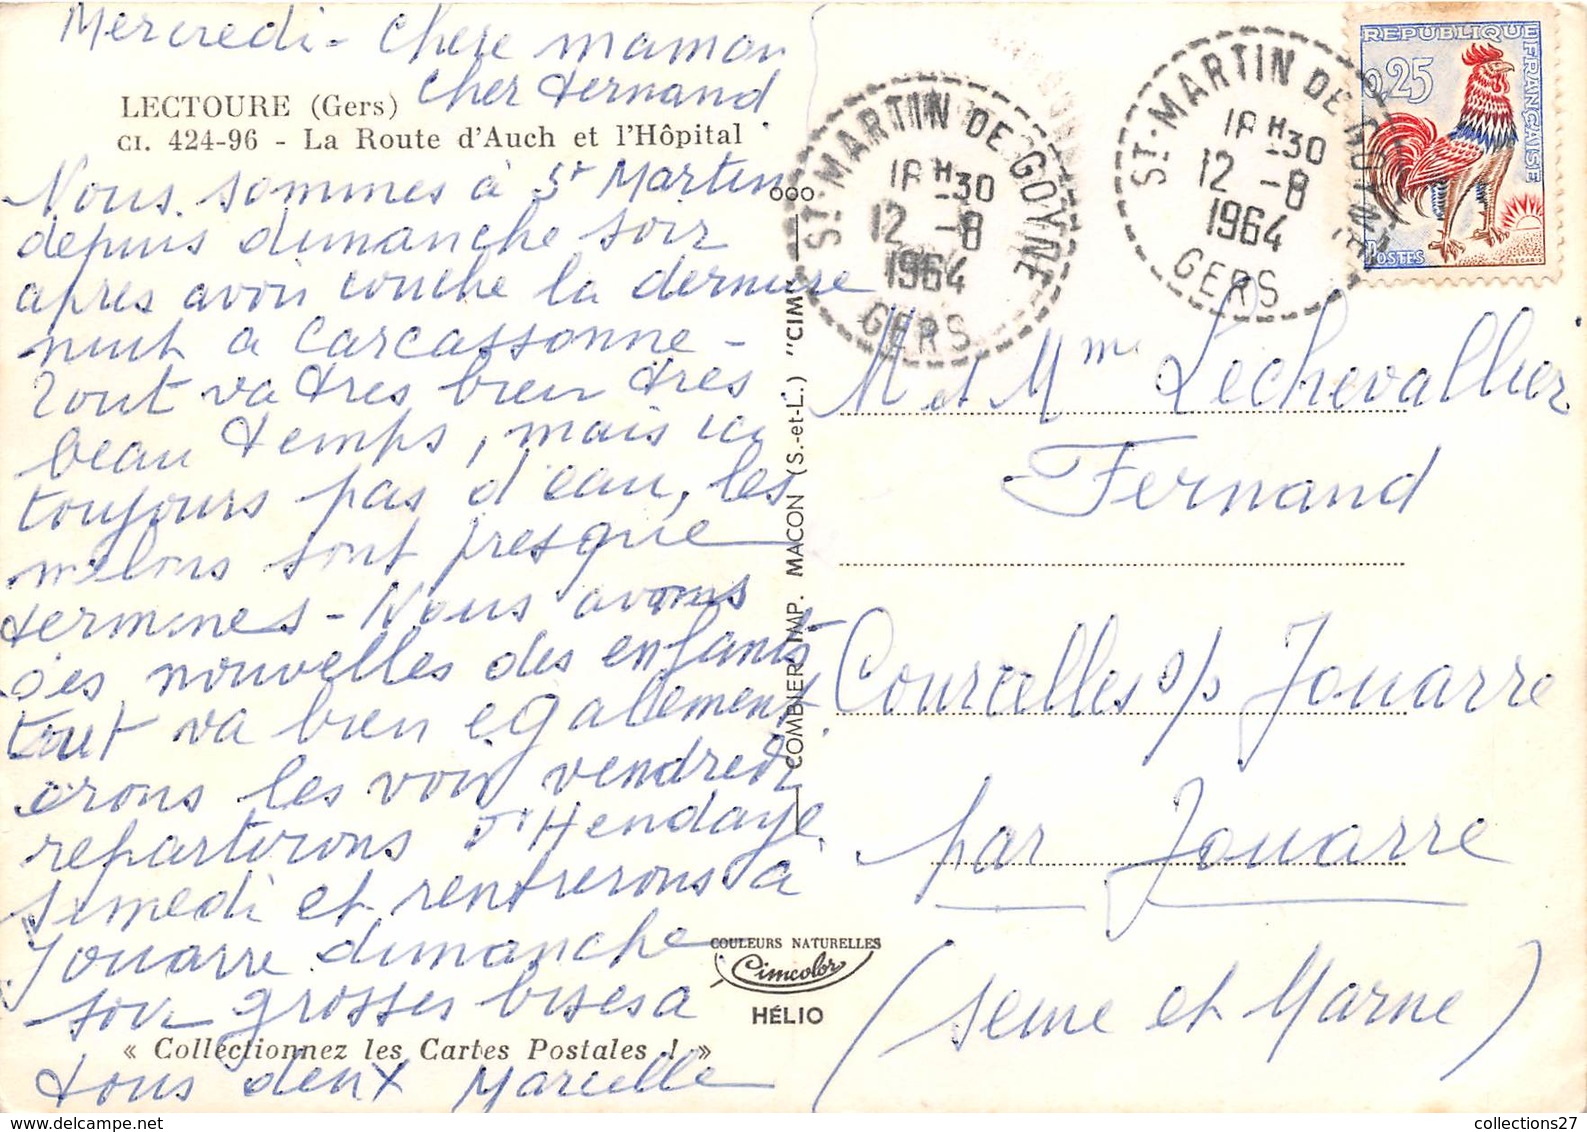 Mercredi - Chere maman
Cher Fernand
LECTOURE (Gers)
CI. 424-96 - La Route d'Auch et l'Hôpital
Nous sommes à St Martin
depuis dimanche soir
apres avoir couche la derniere
nuit a Carcassonne -
Tout va tres bien tres
beau temps, mais ici
toujours pas d'eau, les
melons sont presque
termines - Nous avons
des nouvelles des enfants
tout va bien egalement
irons les voir vendredi
repartirons d'Hendaye
samedi et rentrerons à
Jouarre dimanche
soir grosses bises a
« Collectionnez les Cartes Postales ! »
tous deux Marcelle
COMBIER IMP. MACON (S.-et-L.) "CIM"
COULEURS NATURELLES
Cimcolor
HÉLIO
ST-MARTIN DE GOYNE
18H30
12 -8
1964
GERS
ST-MARTIN DE GOYNE
18H30
12 -8
1964
GERS
REPUBLIQUE FRANÇAISE
0,25
POSTES
M et Mme Lechevallier
Fernand
Courcelles s/ Jouarre
par Jouarre
(Seine et Marne)
collections27